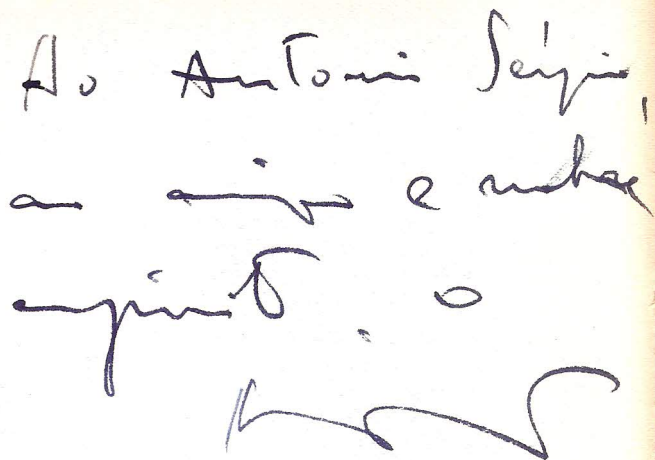 Ao Antonio Sérgio,
ao amigo e
espirito. o